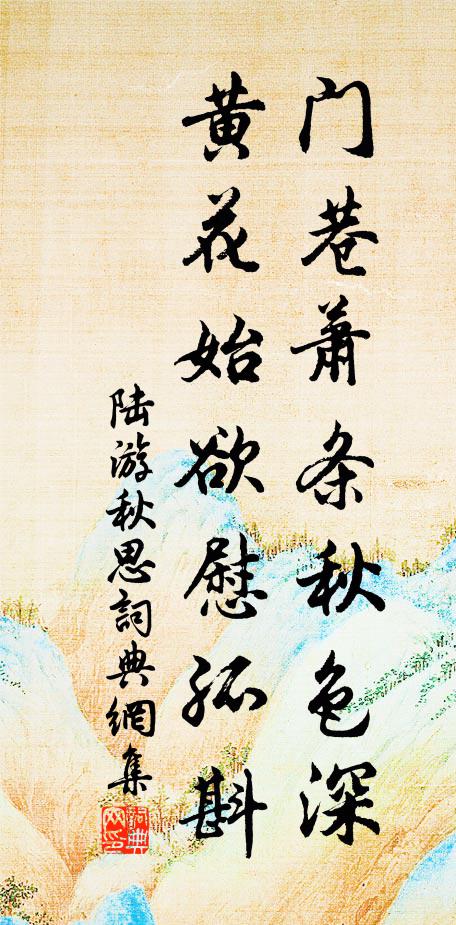 门巷萧条秋色深
黄花始欲慰孤斟
陆游秋思詞典網集
詞典
网印